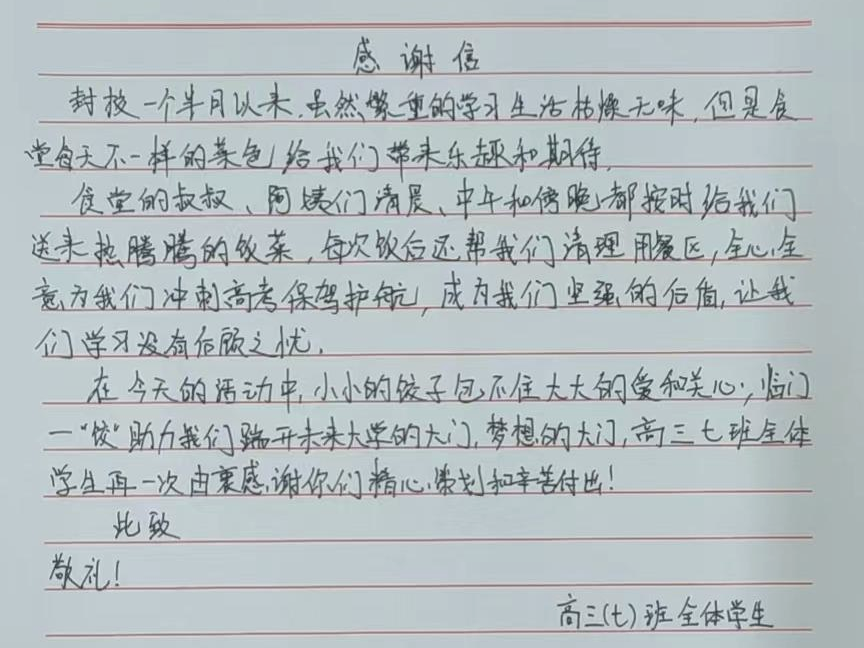 感谢信
封校一个半月以来,虽然繁重的学习生活枯燥无味,但是食
堂每天不一样的菜色,给我们带来乐趣和期待。
食堂的叔叔、阿姨们清晨、中午和傍晚都按时给我们
送来热腾腾的饭菜,每次饭后还帮我们清理用餐区,全心全
意为我们冲刺高考保驾护航,成为我们坚强的后盾,让我
们学习没有后顾之忧。
在今天的活动中,小小的饺子包不住大大的爱和关心,临门
一“饺”助力我们踹开未来大学的大门,梦想的大门,高三七班全体
学生再一次由衷感谢你们精心策划和辛苦付出!
此致
敬礼!
高三(七)班全体学生